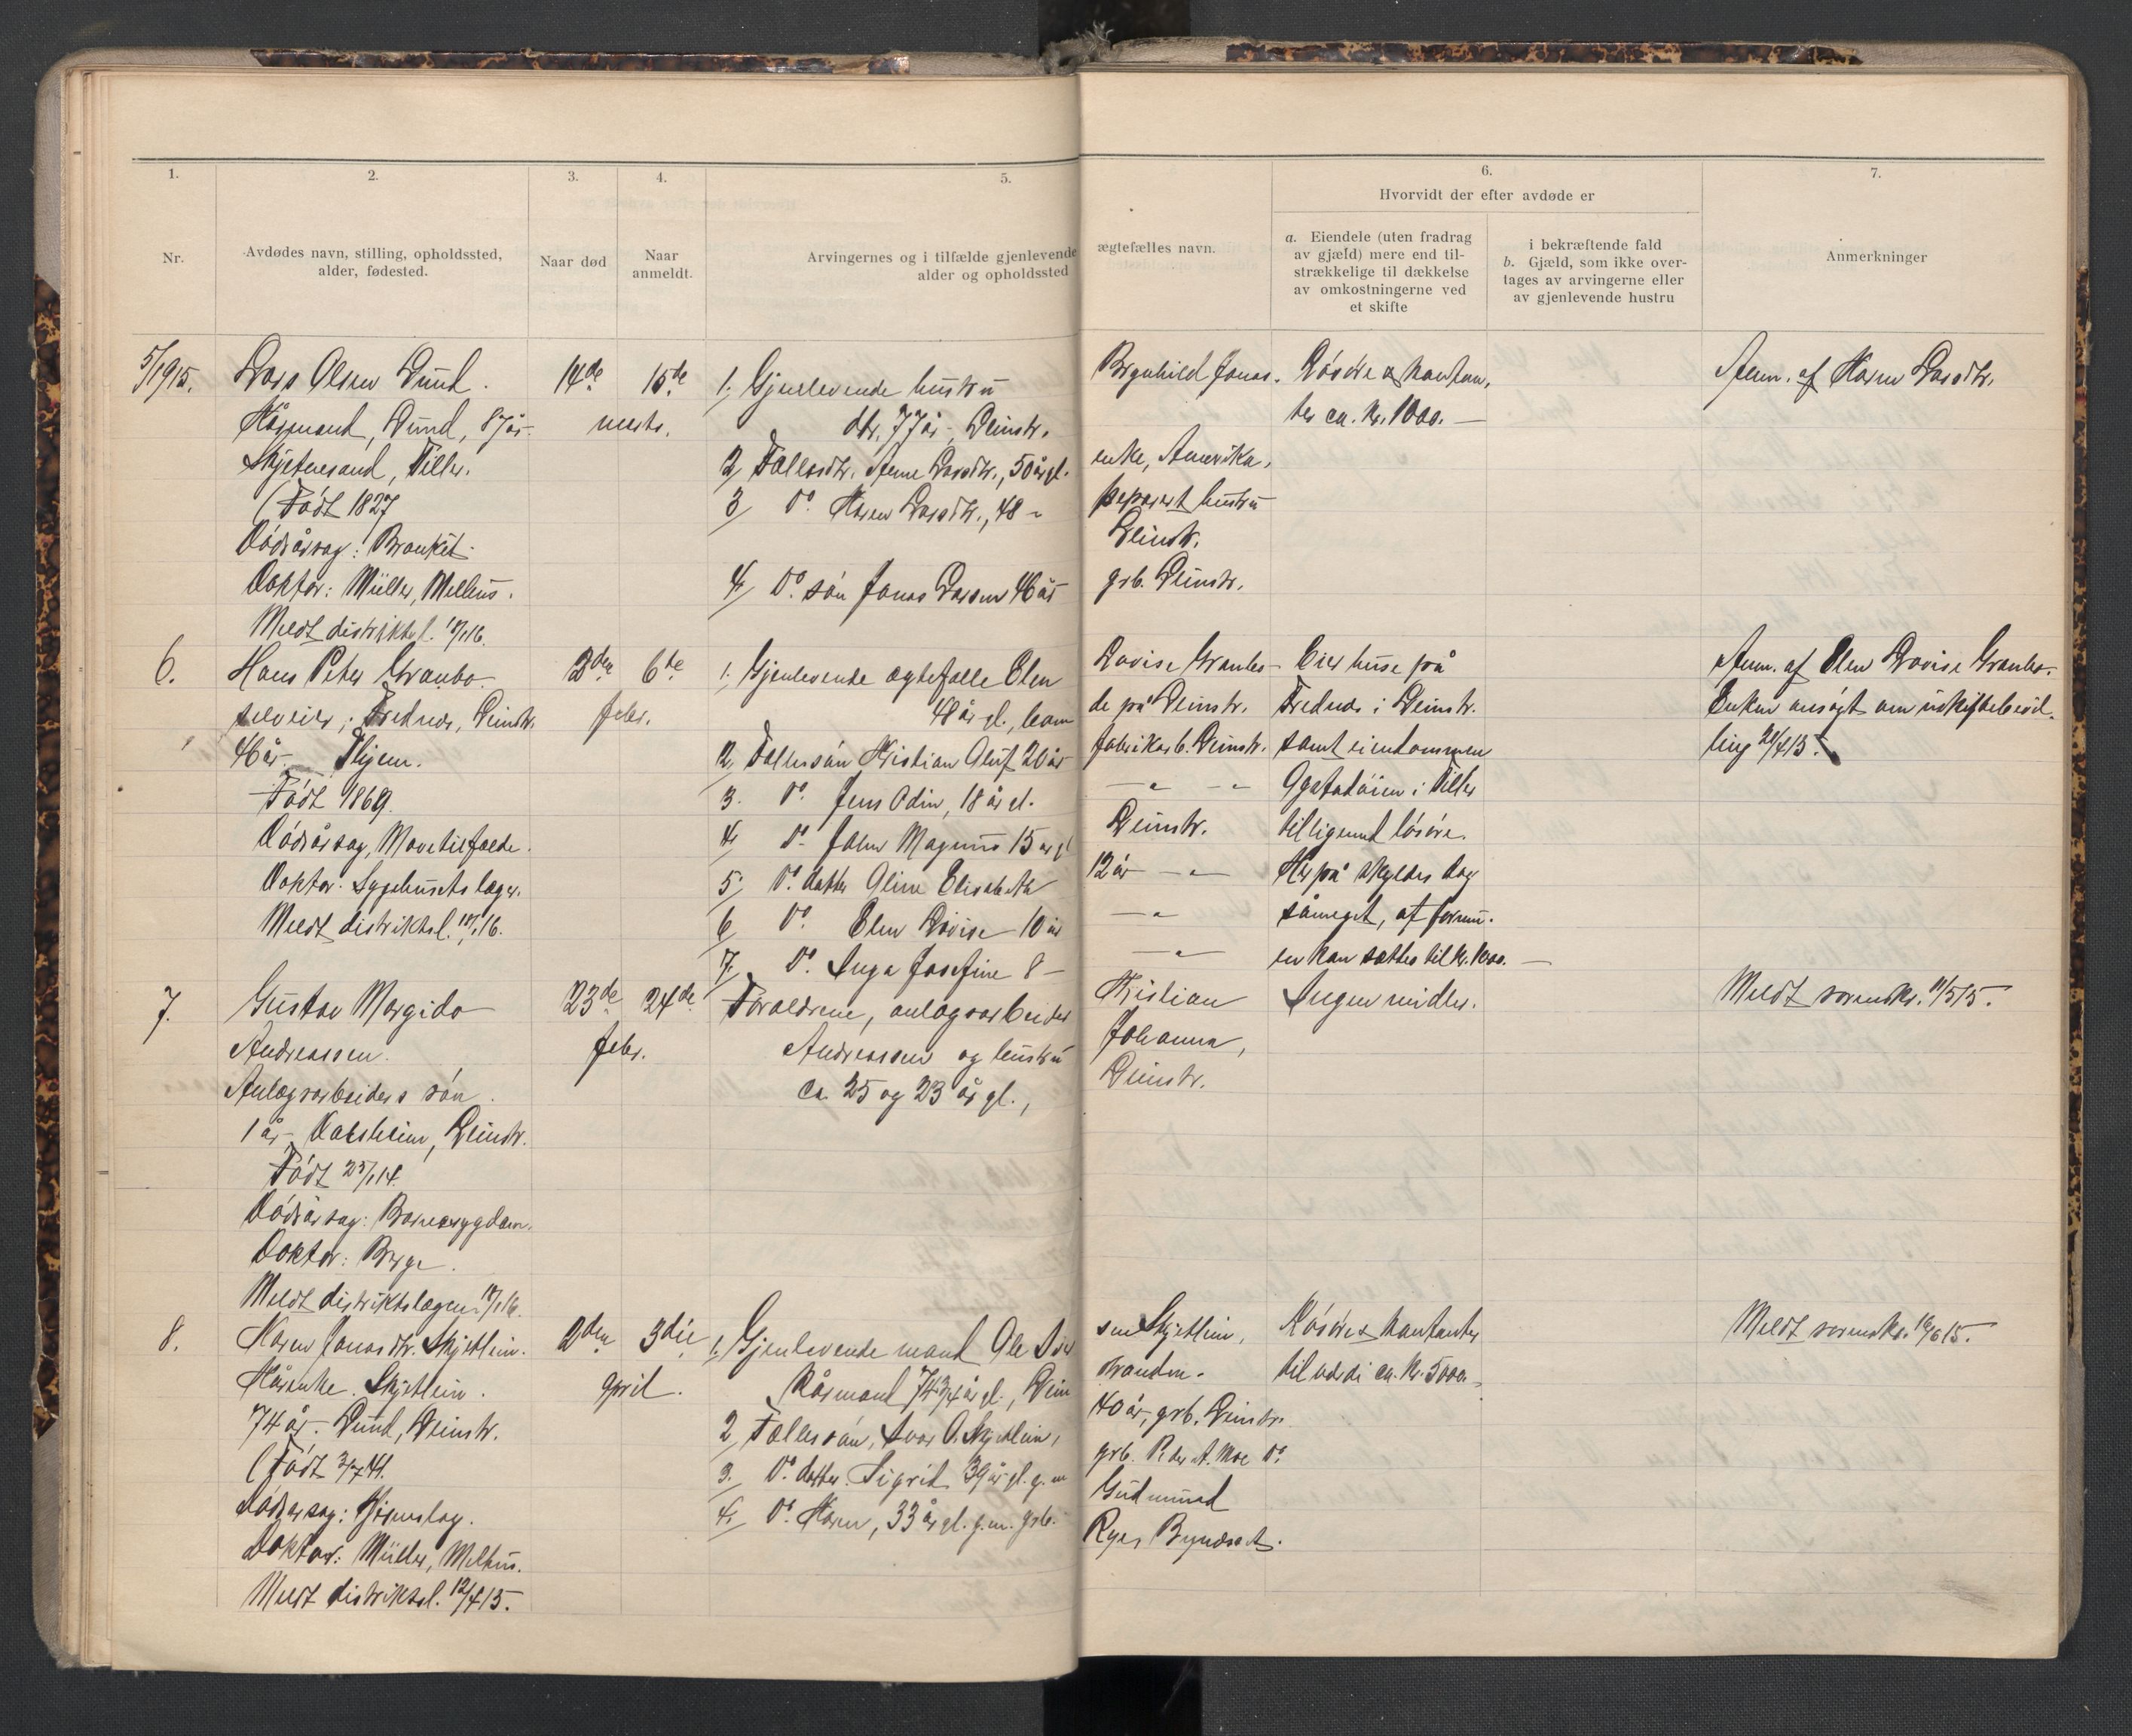 1.
2.
3.
4.
5.
6.
7.
Nr.
Avdødes navn, stilling, opholdssted,
alder, fødested.
Naar død
Naar
anmeldt.
Arvingernes og i tilfælde gjenlevende
alder og opholdssted
ægtefælles navn.
Hvorvidt der efter avdøde er
a. Eiendele (uten fradrag
av gjæld) mere end til-
strækkelige til dækkelse
av omkostningerne ved
et skifte
i bekræftende fald
b. Gjæld, som ikke over-
tages av arvingerne eller
av gjenlevende hustru
Anmerkninger
5/1915. Lars Olsen Lund. 14de 15de 1. Gjenlevende hustru Brynhild Jonas. Løsøre & kontan, Anm. af Karen Larsdtr.
Kårmand, Lund, 87 år. marts. dtr. 77 år, Leinstr. ter ca. kr. 1000.—
Tiller. 2, Fællesdtr. Anne Larsdtr., 50 år gl. enke, Amerika,
(Født 1827 3, Do Karen Larsdtr., 48 - separert hustru
Dødsårsag: Bronkit. Leinstr.
Doktor: Müller, Melhus. 4, Do. søn Jonas Larsen 46 år grb. Leinstr.
Meldt distriktsl.
6. Hans Peter Granbo. 2den 6te 1. Gjenlevende ægtefælle Elen Lovise Granbo- Eier huse på Anm. af Elen Lovise Granbo.
selveier, Frednes, Leinstr. febr. 48 år gl. de på Leinstr. Frednes i Leinstr. Enken ansøgt om uskiftebevil-
46 år. 2, Fællessøn Kristian Oluf 20 år fabrikarb. Leinstr. samt eiendommen ling 21/4 15.
Født 1869. 3. Do. Jens Odin, 18 år gl. — " — " i Tiller
Dødsårsag, Mavetilfælde. 4, Do. Johan Magnus 15 år gl Leinstr. tilligemed løsøre.
Doktor. Sygehusets læger. 5, Do. datter Oline Elisabeth 12 år — " — Herpå skyldes dog
Meldt distriktsl. 6, Do. Elen Lovise 10 år — " såmeget, at formu-
7, Do. Inga Josefine 8 — — " — en kan sættes til kr. 1000.—
7. Gustav Margido 23de 24de Forældrene, anlægsarbeider Kristian Ingen midler. Meldt sorenskr. 11/5 15.
Andreassen. febr. Andreassen og hustru Johanna,
Anlægsarbeiders søn. ca. 25 og 23 år gl., Leinstr.
1 år. Leinstr.
Født
Dødsårsag:
Doktor: Berge.
Meldt distriktslægen
8. Karen Jonasdtr. Skjetlein. 2den 3die 1, Gjenlevende mand Ole Iver sen Skjetlein, Løsøre & kontanter Meldt sorenskr.
Kårenke. Skjetlein. april. Kårmand 74 3/4 år gl., Lein stranden. til værdi ca. kr. 5000.—
74 år. Lund, Leinstr. 2, Fællessøn, Ivar O. Skjetlein, 40 år, grb. Leinstr.
(Født 3/7 41. 3. Do. datter. Sigrid 39 år gl. g. m grb. Peder A. Moe Do.
Dødsårsag: Hjerneslag. 4, Do. Karen, 33 år gl. g.m. grb. Gudmund
Doktor: Müller, Melhus. Ryes Byneset.
Meldt distriktsl. 12/4 15.